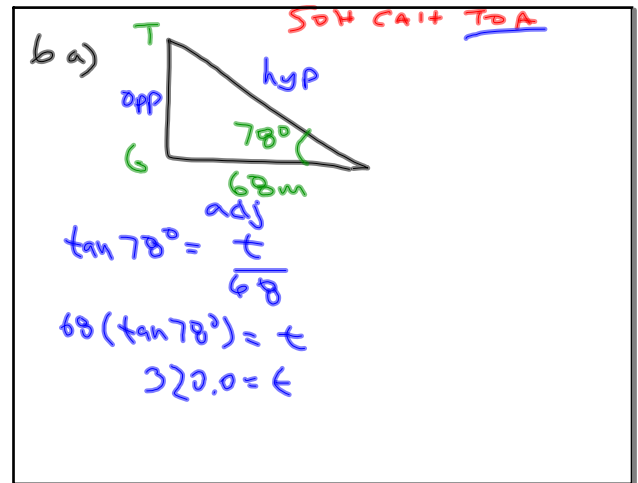 SOH CAH TOA
6 a)
T
opp
hyp
78°
G
68m
adj
tan 78° = t
68
68(tan 78°) = t
320.0 = t